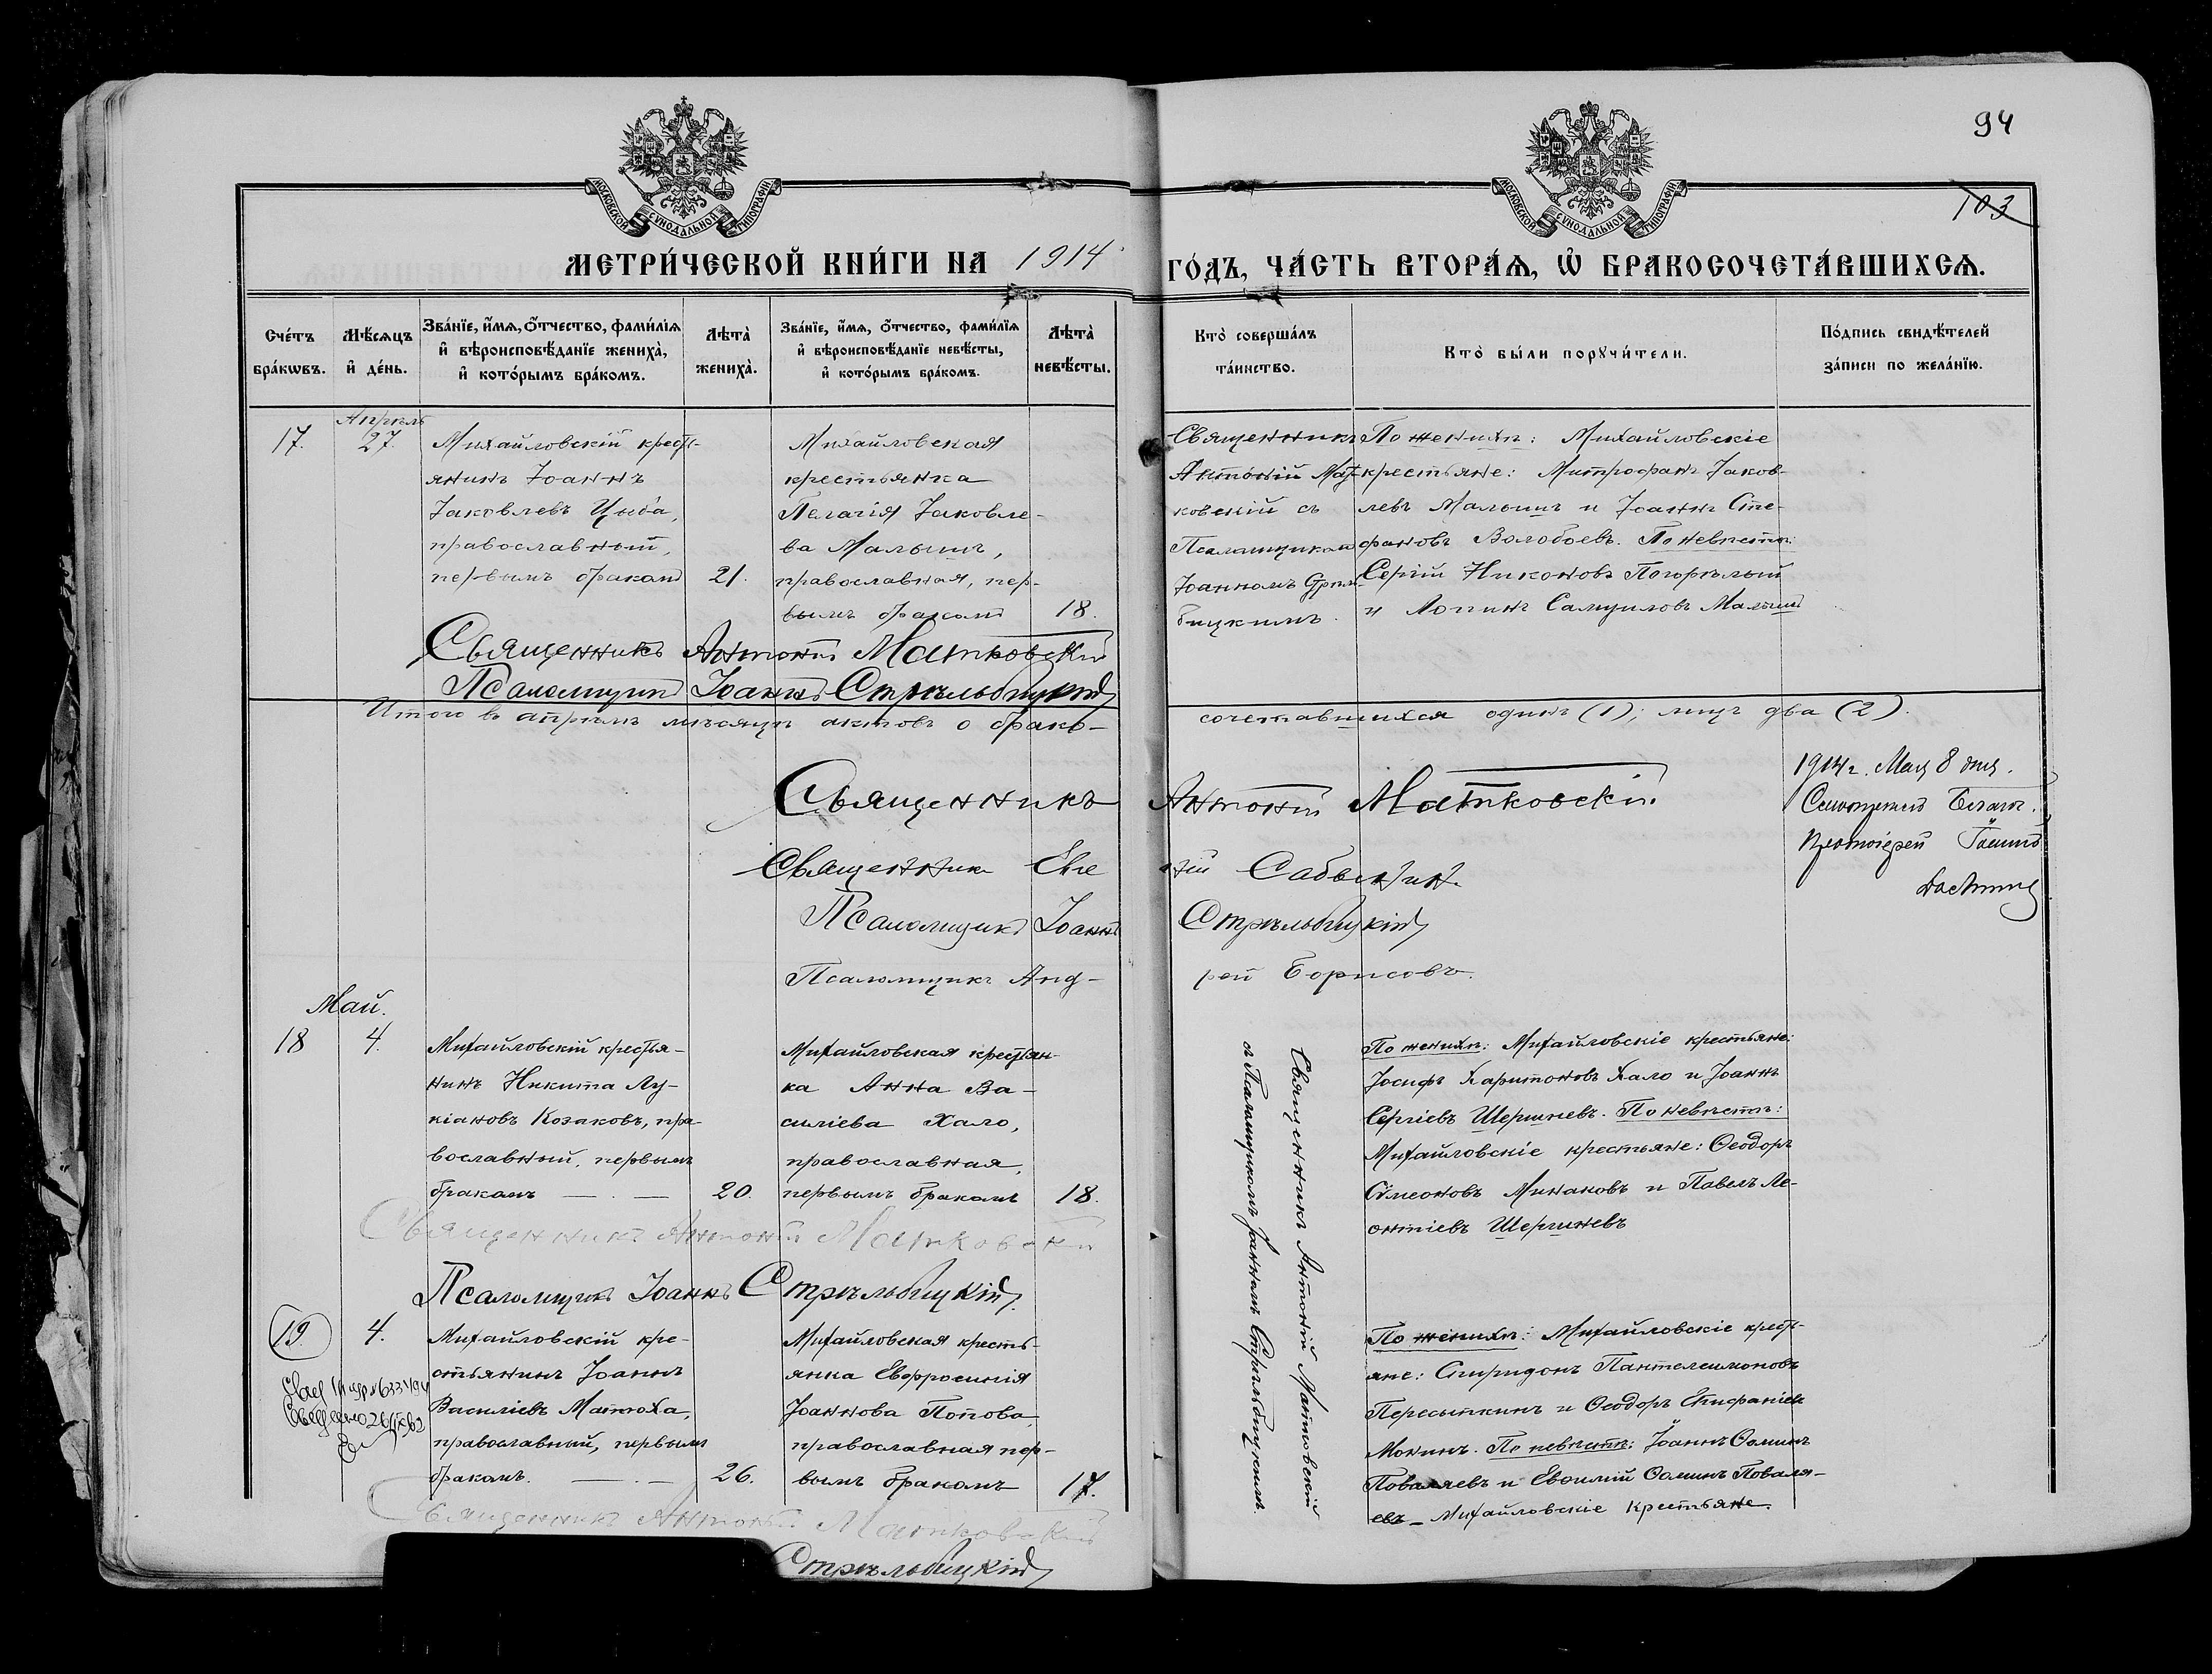 94
103
МОСКОВСКОЙ СУНОДАЛЬНОЙ ТИПОГРАФІИ
МОСКОВСКОЙ СУНОДАЛЬНОЙ ТИПОГРАФІИ
МЕТРИ́ЧЕСКОЙ КНИ́ГИ НА 1914 ГО́ДЪ, ЧА́СТЬ ВТОРА́Ѧ, Ѽ БРАКОСОЧЕТА́ВШИХСѦ.
Сче́тъ бра́кѡвъ.
Мѣ́сѧцъ и҆ де́нь.
Зва́нїе, и҆́мѧ, ѻ҆́тчество, фами́лїѧ
и҆ вѣроисповѣ́данїе жениха̀,
и҆ кото́рымъ бра́комъ.
Лѣта̀ жениха̀.
Зва́нїе, и҆́мѧ, ѻ҆́тчество, фами́лїѧ
и҆ вѣроисповѣ́данїе невѣ́сты,
и҆ кото́рымъ бра́комъ.
Лѣта̀ невѣ́сты.
Кто̀ соверша́лъ та́инство.
Кто̀ бы́ли порꙋчи́тели.
По́дпись свидѣ́телей за́писи по жела́нїю.
Апрѣль
17. 27.
Михайловскій кресть-
янинъ Іоаннъ
Іаковлевъ Цыба,
православный,
первымъ бракомъ 21.
Михайловская
крестьянка
Пелагія Іаковле-
ва Малышъ,
православная, пер-
вымъ бракомъ 18.
Священникъ
Антоній Мат-
ковскій съ
Псаломщикомъ
Іоанномъ Стрѣль-
бицкимъ.
По женихѣ: Михайловскіе
крестьяне: Митрофанъ Іаков-
левъ Малышъ и Іоаннъ Сте-
фановъ Волобоевъ. По невѣстѣ:
Сергій Никоновъ Погорѣлый
и Логинъ Самуиловъ Малышъ
Священникъ Антоній Матковскій
Псаломщикъ Іоаннъ Стрѣльбицкій
Итого въ апрѣлѣ мѣсяцѣ актовъ о брако-
сочетавшихся одинъ (1); лицъ два (2).
Священникъ Антоній Матковскій.
Священникъ Евгеній Сабынинъ
Псаломщикъ Іоаннъ Стрѣльбицкій
Псаломщикъ Анд-
рей Борисовъ.
1914 г. Мая 8 дня.
Протоіерей
Май.
18 4.
Михайловскій крестья-
нинъ Никита Лу-
кіановъ Козаковъ, пра-
вославный, первымъ
бракомъ — . — 20.
Михайловская крестьян-
ка Анна Ва-
силіева Хало,
православная,
первымъ бракомъ 18.
Священникъ Антоній Матковскій
съ Псаломщикомъ Іоанномъ Стрѣльбицкимъ.
По женихѣ: Михайловскіе крестьяне:
Іосифъ Харитоновъ Хало и Іоаннъ
Сергіевъ Шершневъ. По невѣстѣ:
Михайловскіе крестьяне: Ѳеодоръ
Симеоновъ Минаковъ и Павелъ Ле-
онтіевъ Шершневъ
Священникъ Антоній Матковскій
Псаломщикъ Іоаннъ Стрѣльбицкій.
19. 4.
Михайловскій кре-
стьянинъ Іоаннъ
Василіевъ Матюха,
православный, первымъ
бракомъ. — . — 26.
Михайловская кресть-
янка Евфросинія
Іоаннова Попова
православная пер-
вымъ бракомъ 17.
По женихѣ: Михайловскіе кресть-
яне: Спиридонъ Пантелеимоновъ
Пересыпкинъ и Ѳеодоръ Епифаніевъ
Мокинъ. По невѣстѣ: Іоаннъ Ѳоминъ
Поваляевъ и Евѳимій Ѳоминъ Поваля-
евъ – Михайловскіе крестьяне.
Священникъ Антоній Матковскій
Стрѣльбицкій